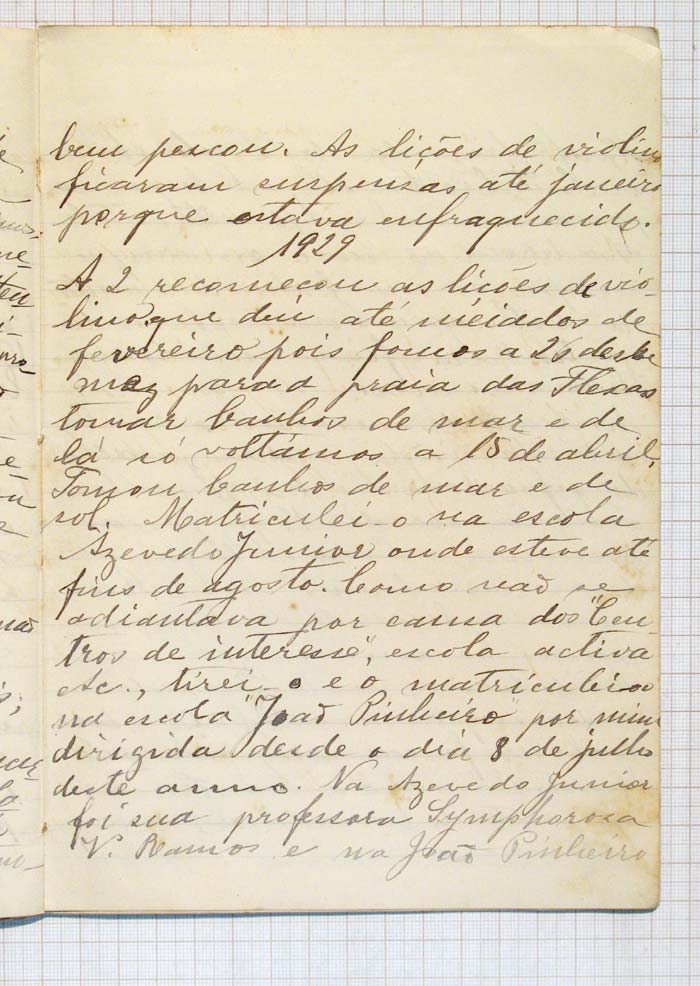 bem pescou. As lições de violino
ficaram suspensas até janeiro
porque estava enfraquecido.
1929
A 2 recomeçou as lições de vio-
lino que deu até meiados de
fevereiro pois fomos a 26 deste
mez para a praia das Flexas
tomar banhos de mar e de
lá só voltámos a 15 de abril,
Tomou banhos de mar e de
sol. Matriculei-o na escola
Azevedo Junior onde esteve até
fins de agosto. Como não se
adiantava por causa dos "Cen-
tros de interesse", escola activa
etc., tirei-o e o matriculei
na escola "João Pinheiro" por mim
dirigida desde o dia 8 de julho
deste anno. Na Azevedo Junior
foi sua professora Symphorosa
V. Ramos e na João Pinheiro